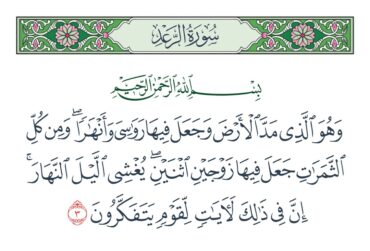 سُورَةُ الرَّعْدِ
بِسْمِ اللَّهِ الرَّحْمَٰنِ الرَّحِيمِ
وَهُوَ ٱلَّذِى مَدَّ ٱلْأَرْضَ وَجَعَلَ فِيهَا رَوَٰسِىَ وَأَنْهَٰرًا ۖ وَمِن كُلِّ
ٱلثَّمَرَٰتِ جَعَلَ فِيهَا زَوْجَيْنِ ٱثْنَيْنِ ۖ يُغْشِى ٱلَّيْلَ ٱلنَّهَارَ ۚ
إِنَّ فِى ذَٰلِكَ لَءَايَٰتٍ لِّقَوْمٍ يَتَفَكَّرُونَ ٣